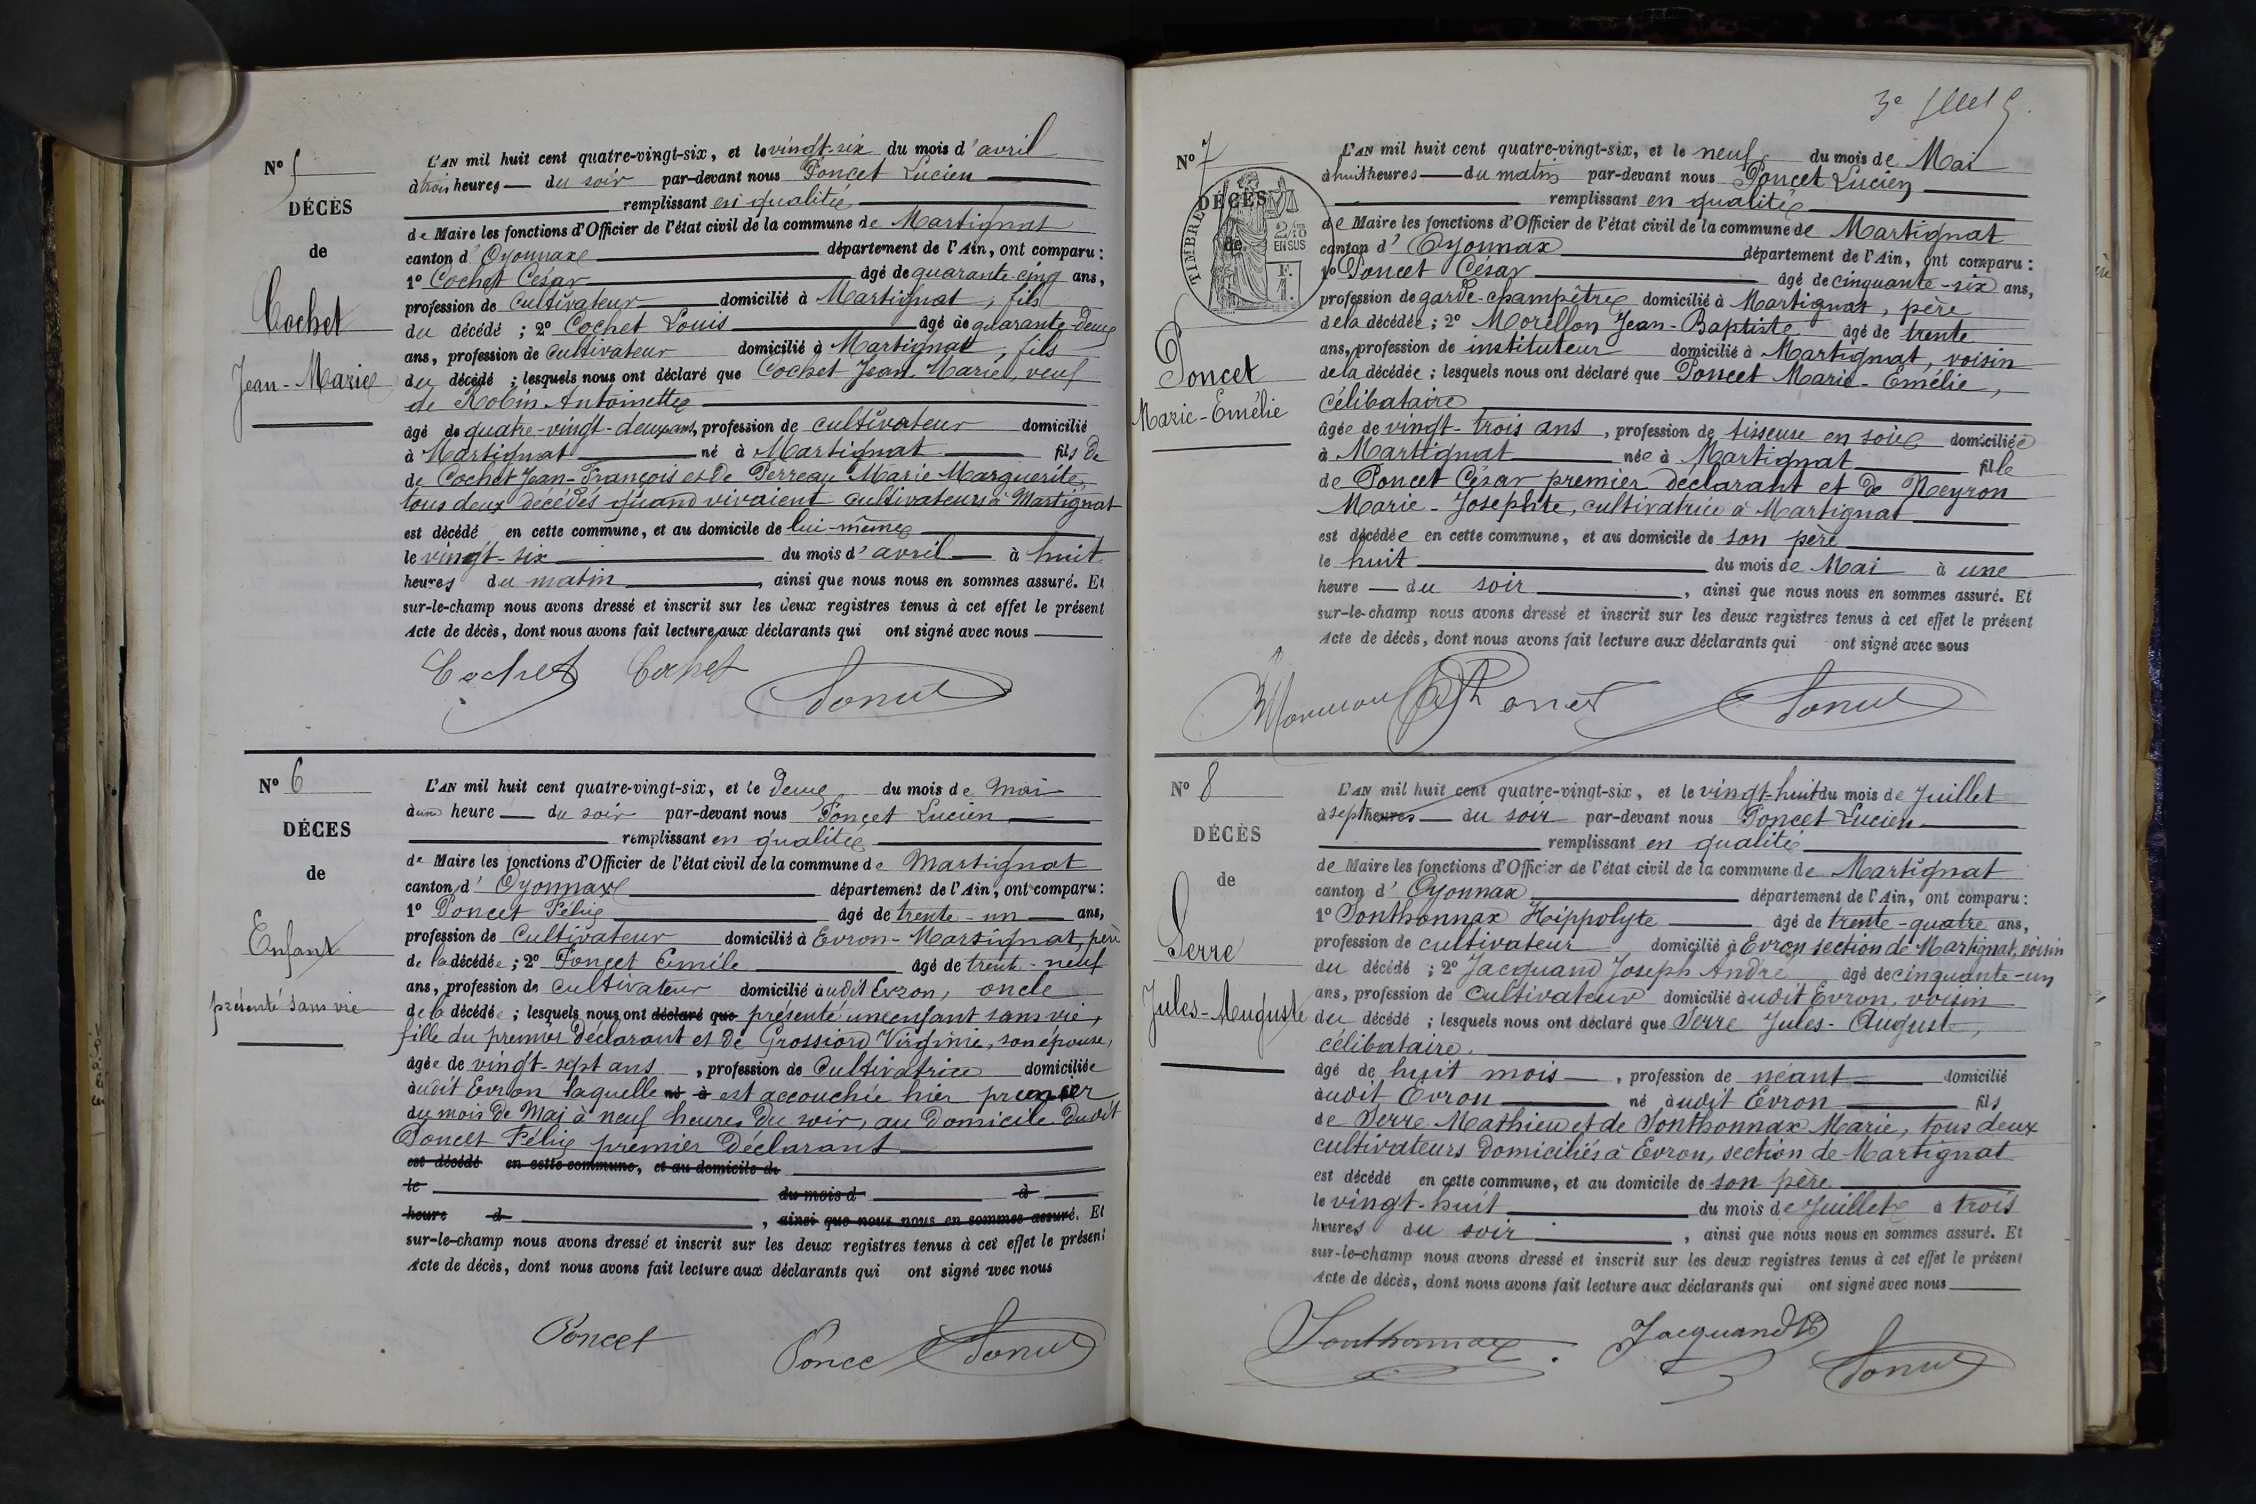 N° 5
DÉCÈS
de
Cochet
Jean-Marie
L'AN mil huit cent quatre-vingt-six, et le vingt-six du mois d'avril
à trois heures du soir par-devant nous Poncet Lucien
remplissant en qualité
de Maire les fonctions d'Officier de l'état civil de la commune de Martignat
canton d'Oyonnax département de l'Ain, ont comparu :
1° Cochet César âgé de quarante-cinq ans,
profession de cultivateur domicilié à Martignat, fils
du décédé ; 2° Cochet Louis âgé de quarante-deux
ans, profession de cultivateur domicilié à Martignat, fils
du décédé ; lesquels nous ont déclaré que Cochet Jean-Marie, veuf
de Robin Antoinette
âgé de quatre-vingt-deux ans, profession de cultivateur domicilié
à Martignat né à Martignat fils de
de Cochet Jean-François et de Perreau Marie Marguerite,
tous deux décédés quand vivaient cultivateurs à Martignat
est décédé en cette commune, et au domicile de lui-même
le vingt-six du mois d'avril à huit
heures du matin, ainsi que nous nous en sommes assuré. Et
sur-le-champ nous avons dressé et inscrit sur les deux registres tenus à cet effet le présent
Acte de décès, dont nous avons fait lecture aux déclarants qui ont signé avec nous
Cochet Cochet Poncet
N° 6
DÉCES
de
Enfant
présenté sans vie
L'AN mil huit cent quatre-vingt-six, et le deux du mois de Mai
à une heure du soir par-devant nous Poncet Lucien
remplissant en qualité
de Maire les fonctions d'Officier de l'état civil de la commune de Martignat
canton d'Oyonnax département de l'Ain, ont comparu :
1° Poncet Félix âgé de trente-un ans,
profession de Cultivateur domicilié à Evron-Martignat, père
de la décédée ; 2° Poncet Emile âgé de trente-neuf
ans, profession de cultivateur domicilié audit Evron, oncle
de la décédée ; lesquels nous ont déclaré que présenté une enfant sans vie,
fille du premier déclarant et de Grossiord Virginie, son épouse,
âgée de vingt-sept ans, profession de Cultivatrice domiciliée
audit Evron laquelle né à est accouchée hier premier
du mois de Mai à neuf heures du soir, au domicile dudit
Poncet Félix premier Déclarant
est décédé en cette commune, et au domicile de
le du mois d à
heure d , ainsi que nous nous en sommes assuré. Et
sur-le-champ nous avons dressé et inscrit sur les deux registres tenus à cet effet le présent
Acte de décès, dont nous avons fait lecture aux déclarants qui ont signé avec nous
Poncet Ponce Poncet
N° 7
DÉCÈS
de
TIMBRE
2/10 EN SUS
Poncet
Marie-Emélie
L'AN mil huit cent quatre-vingt-six, et le neuf du mois de Mai
à huit heures du matin par-devant nous Poncet Lucien
remplissant en qualité
de Maire les fonctions d'Officier de l'état civil de la commune de Martignat
canton d'Oyonnax département de l'Ain, ont comparu :
1° Poncet César âgé de cinquante-six ans,
profession de garde-champêtre domicilié à Martignat, père
de la décédée ; 2° Morellon Jean-Baptiste âgé de trente
ans, profession de instituteur domicilié à Martignat, voisin
de la décédée ; lesquels nous ont déclaré que Poncet Marie-Emélie,
célibataire
âgée de vingt-trois ans, profession de tisseuse en soie domiciliée
à Martignat née à Martignat fille
de Poncet César premier déclarant et de Neyron
Marie-Josephte, cultivatrice à Martignat
est décédée en cette commune, et au domicile de son père
le huit du mois de Mai à une
heure du soir, ainsi que nous nous en sommes assuré. Et
sur-le-champ nous avons dressé et inscrit sur les deux registres tenus à cet effet le présent
Acte de décès, dont nous avons fait lecture aux déclarants qui ont signé avec nous
Poncet Poncet
N° 8
DÉCÈS
de
Serre
Jules-Auguste
L'AN mil huit cent quatre-vingt-six, et le vingt-huit du mois de Juillet
à sept heures du soir par-devant nous Poncet Lucien
remplissant en qualité
de Maire les fonctions d'Officier de l'état civil de la commune de Martignat
canton d'Oyonnax département de l'Ain, ont comparu :
1° Sonthonnax Hippolyte âgé de trente-quatre ans,
profession de cultivateur domicilié à Evron section de Martignat, voisin
du décédé ; 2° Jacquand Joseph André âgé de cinquante-un
ans, profession de Cultivateur domicilié audit Evron, voisin
du décédé ; lesquels nous ont déclaré que Serre Jules-Auguste,
célibataire,
âgé de huit mois, profession de néant domicilié
audit Evron né audit Evron fils
de Serre Mathieu et de Sonthonnax Marie, tous deux
cultivateurs domiciliés à Evron, section de Martignat
est décédé en cette commune, et au domicile de son père
le vingt-huit du mois de Juillet à trois
heures du soir, ainsi que nous nous en sommes assuré. Et
sur-le-champ nous avons dressé et inscrit sur les deux registres tenus à cet effet le présent
Acte de décès, dont nous avons fait lecture aux déclarants qui ont signé avec nous
Sonthonnax Jacquand Poncet